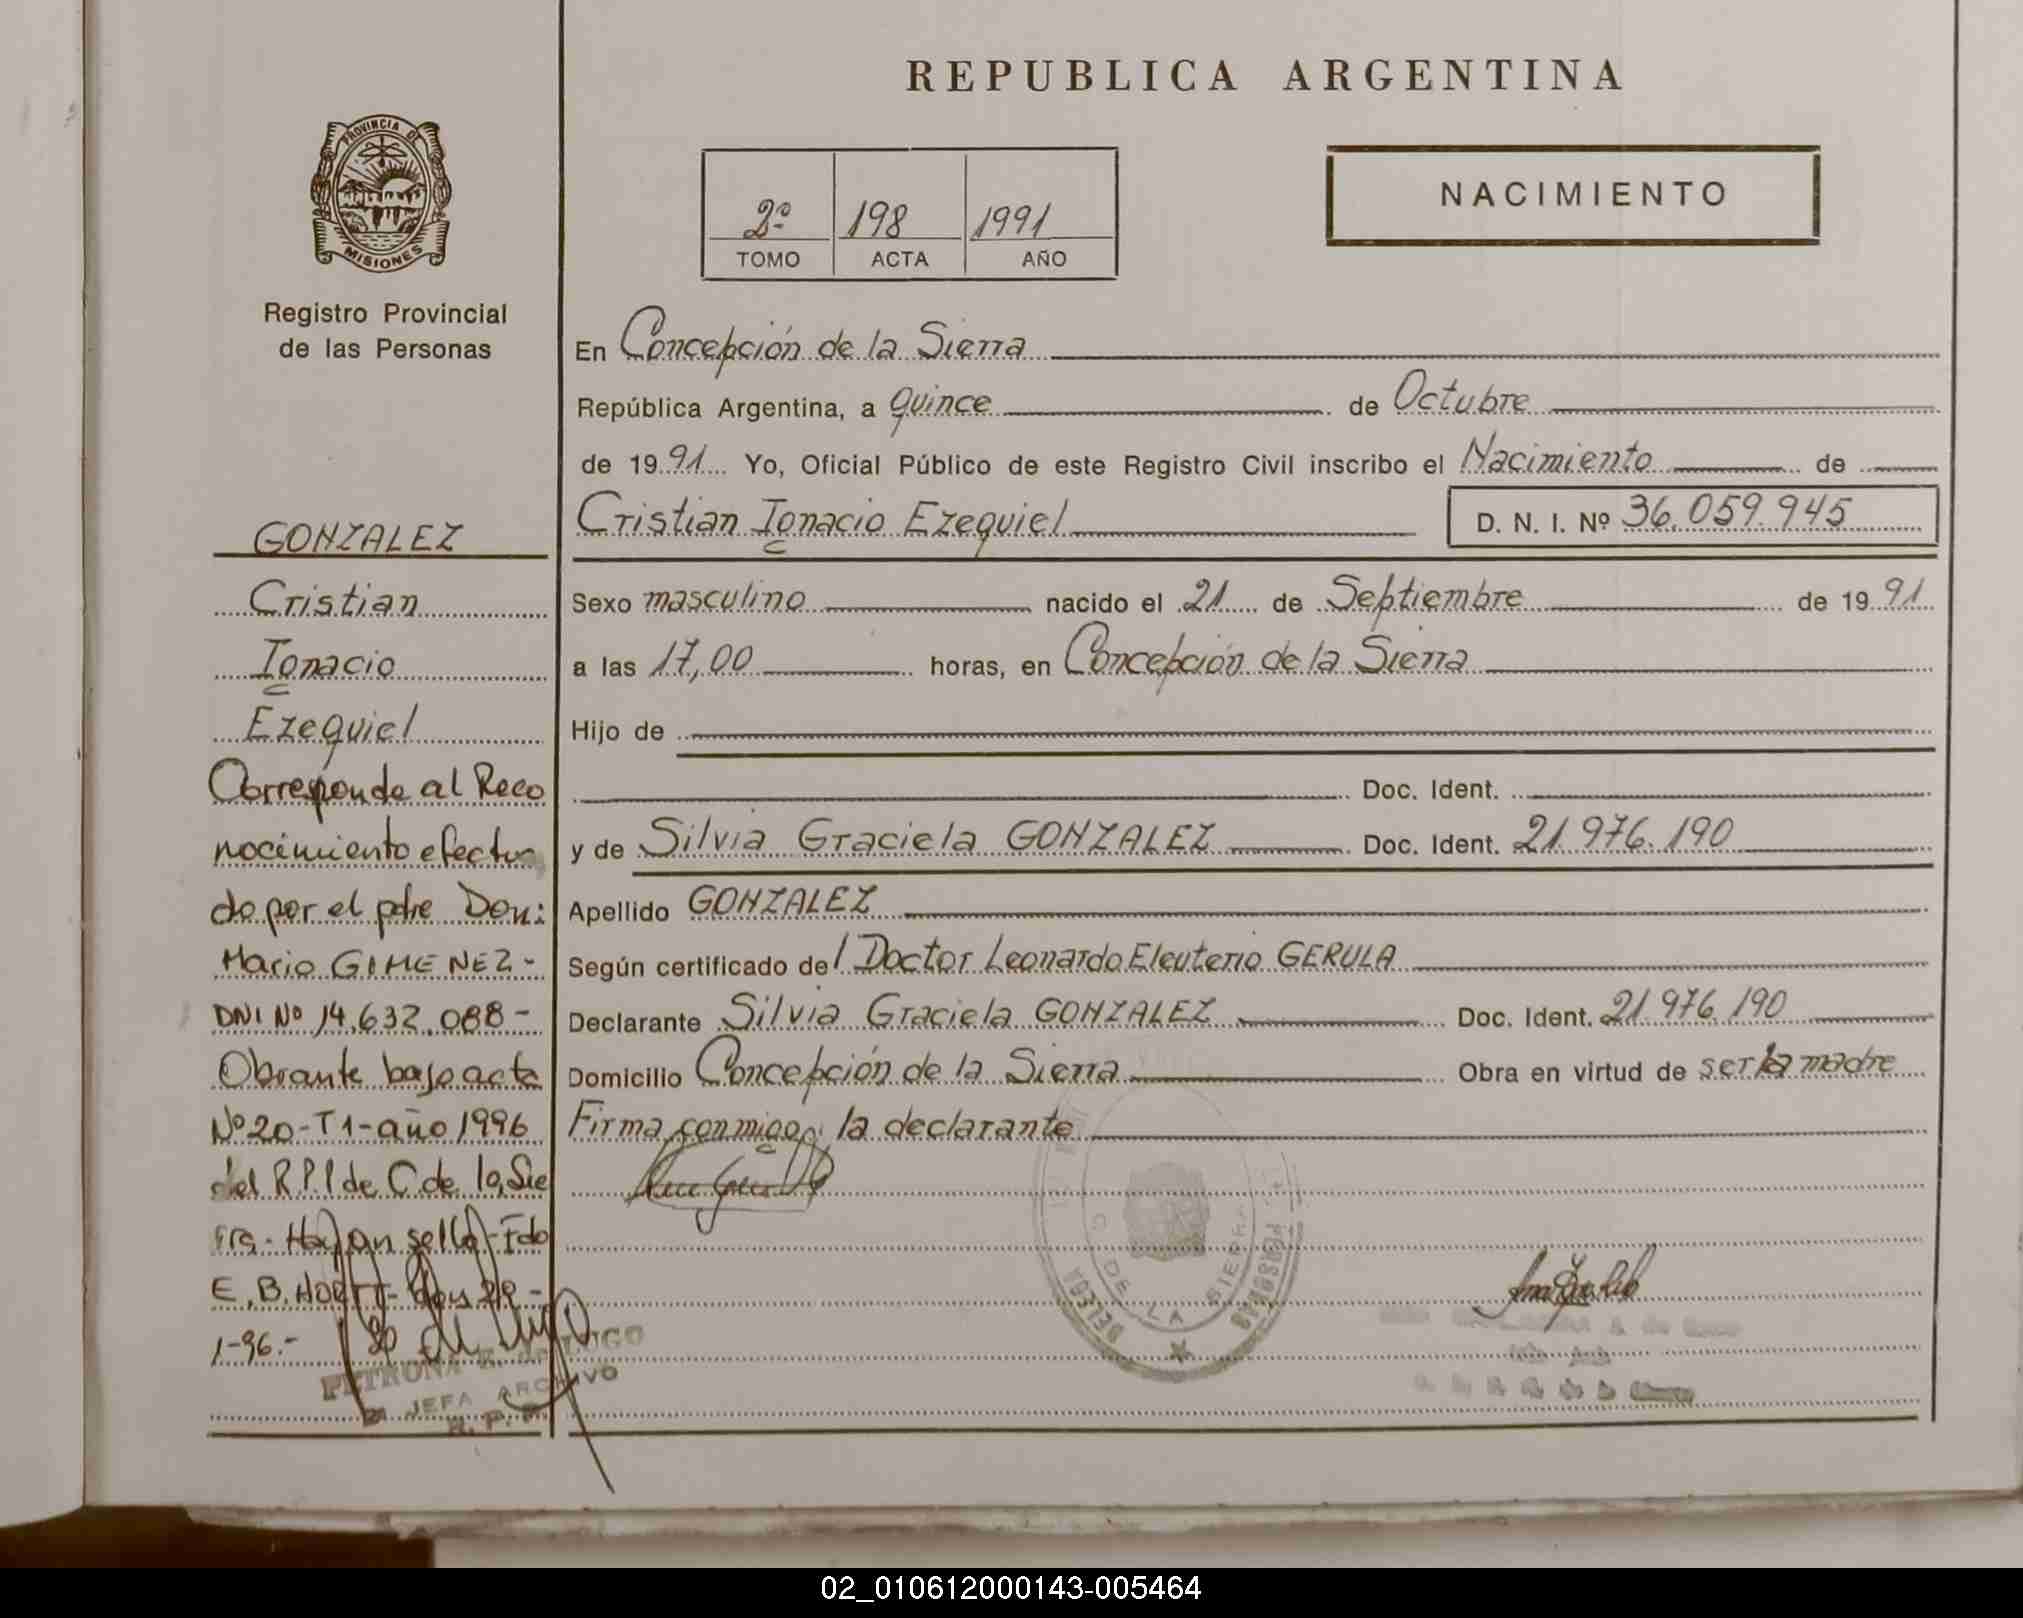 REPUBLICA ARGENTINA
PROVINCIA DE
MISIONES
Registro Provincial
de las Personas
2º 198 1991
TOMO ACTA AÑO
NACIMIENTO
En Concepción de la Sierra
República Argentina, a quince de Octubre
de 1991 Yo, Oficial Público de este Registro Civil inscribo el Nacimiento de
Cristian Ignacio Ezequiel D. N. I. Nº 36.059.945
Sexo masculino nacido el 21 de Septiembre de 1991
a las 17,00 horas, en Concepción de la Sierra
Hijo de
Doc. Ident.
y de Silvia Graciela GONZALEZ Doc. Ident. 21.976.190
Apellido GONZALEZ
Según certificado del Doctor Leonardo Eleuterio GERULA
Declarante Silvia Graciela GONZALEZ Doc. Ident. 21.976.190
Domicilio Concepción de la Sierra Obra en virtud de ser la madre
Firma conmigo, la declarante
GONZALEZ
Cristian
Ignacio
Ezequiel
Corresponde al Reco
nocimiento efectua
do por el pdre Don:
Mario GIMENEZ-
DNI Nº 14.632.088-
Obrante bajo acta
Nº 20-T1-año 1996
del R.P.P de C de la Sie
rra.- Hay un sello- Fdo
E.B.
1-96.-
PETRONA E. de LUGO
JEFA ARCHIVO
R. P. P.
C. DE LA SIERRA
PERSONAS
02_010612000143-005464